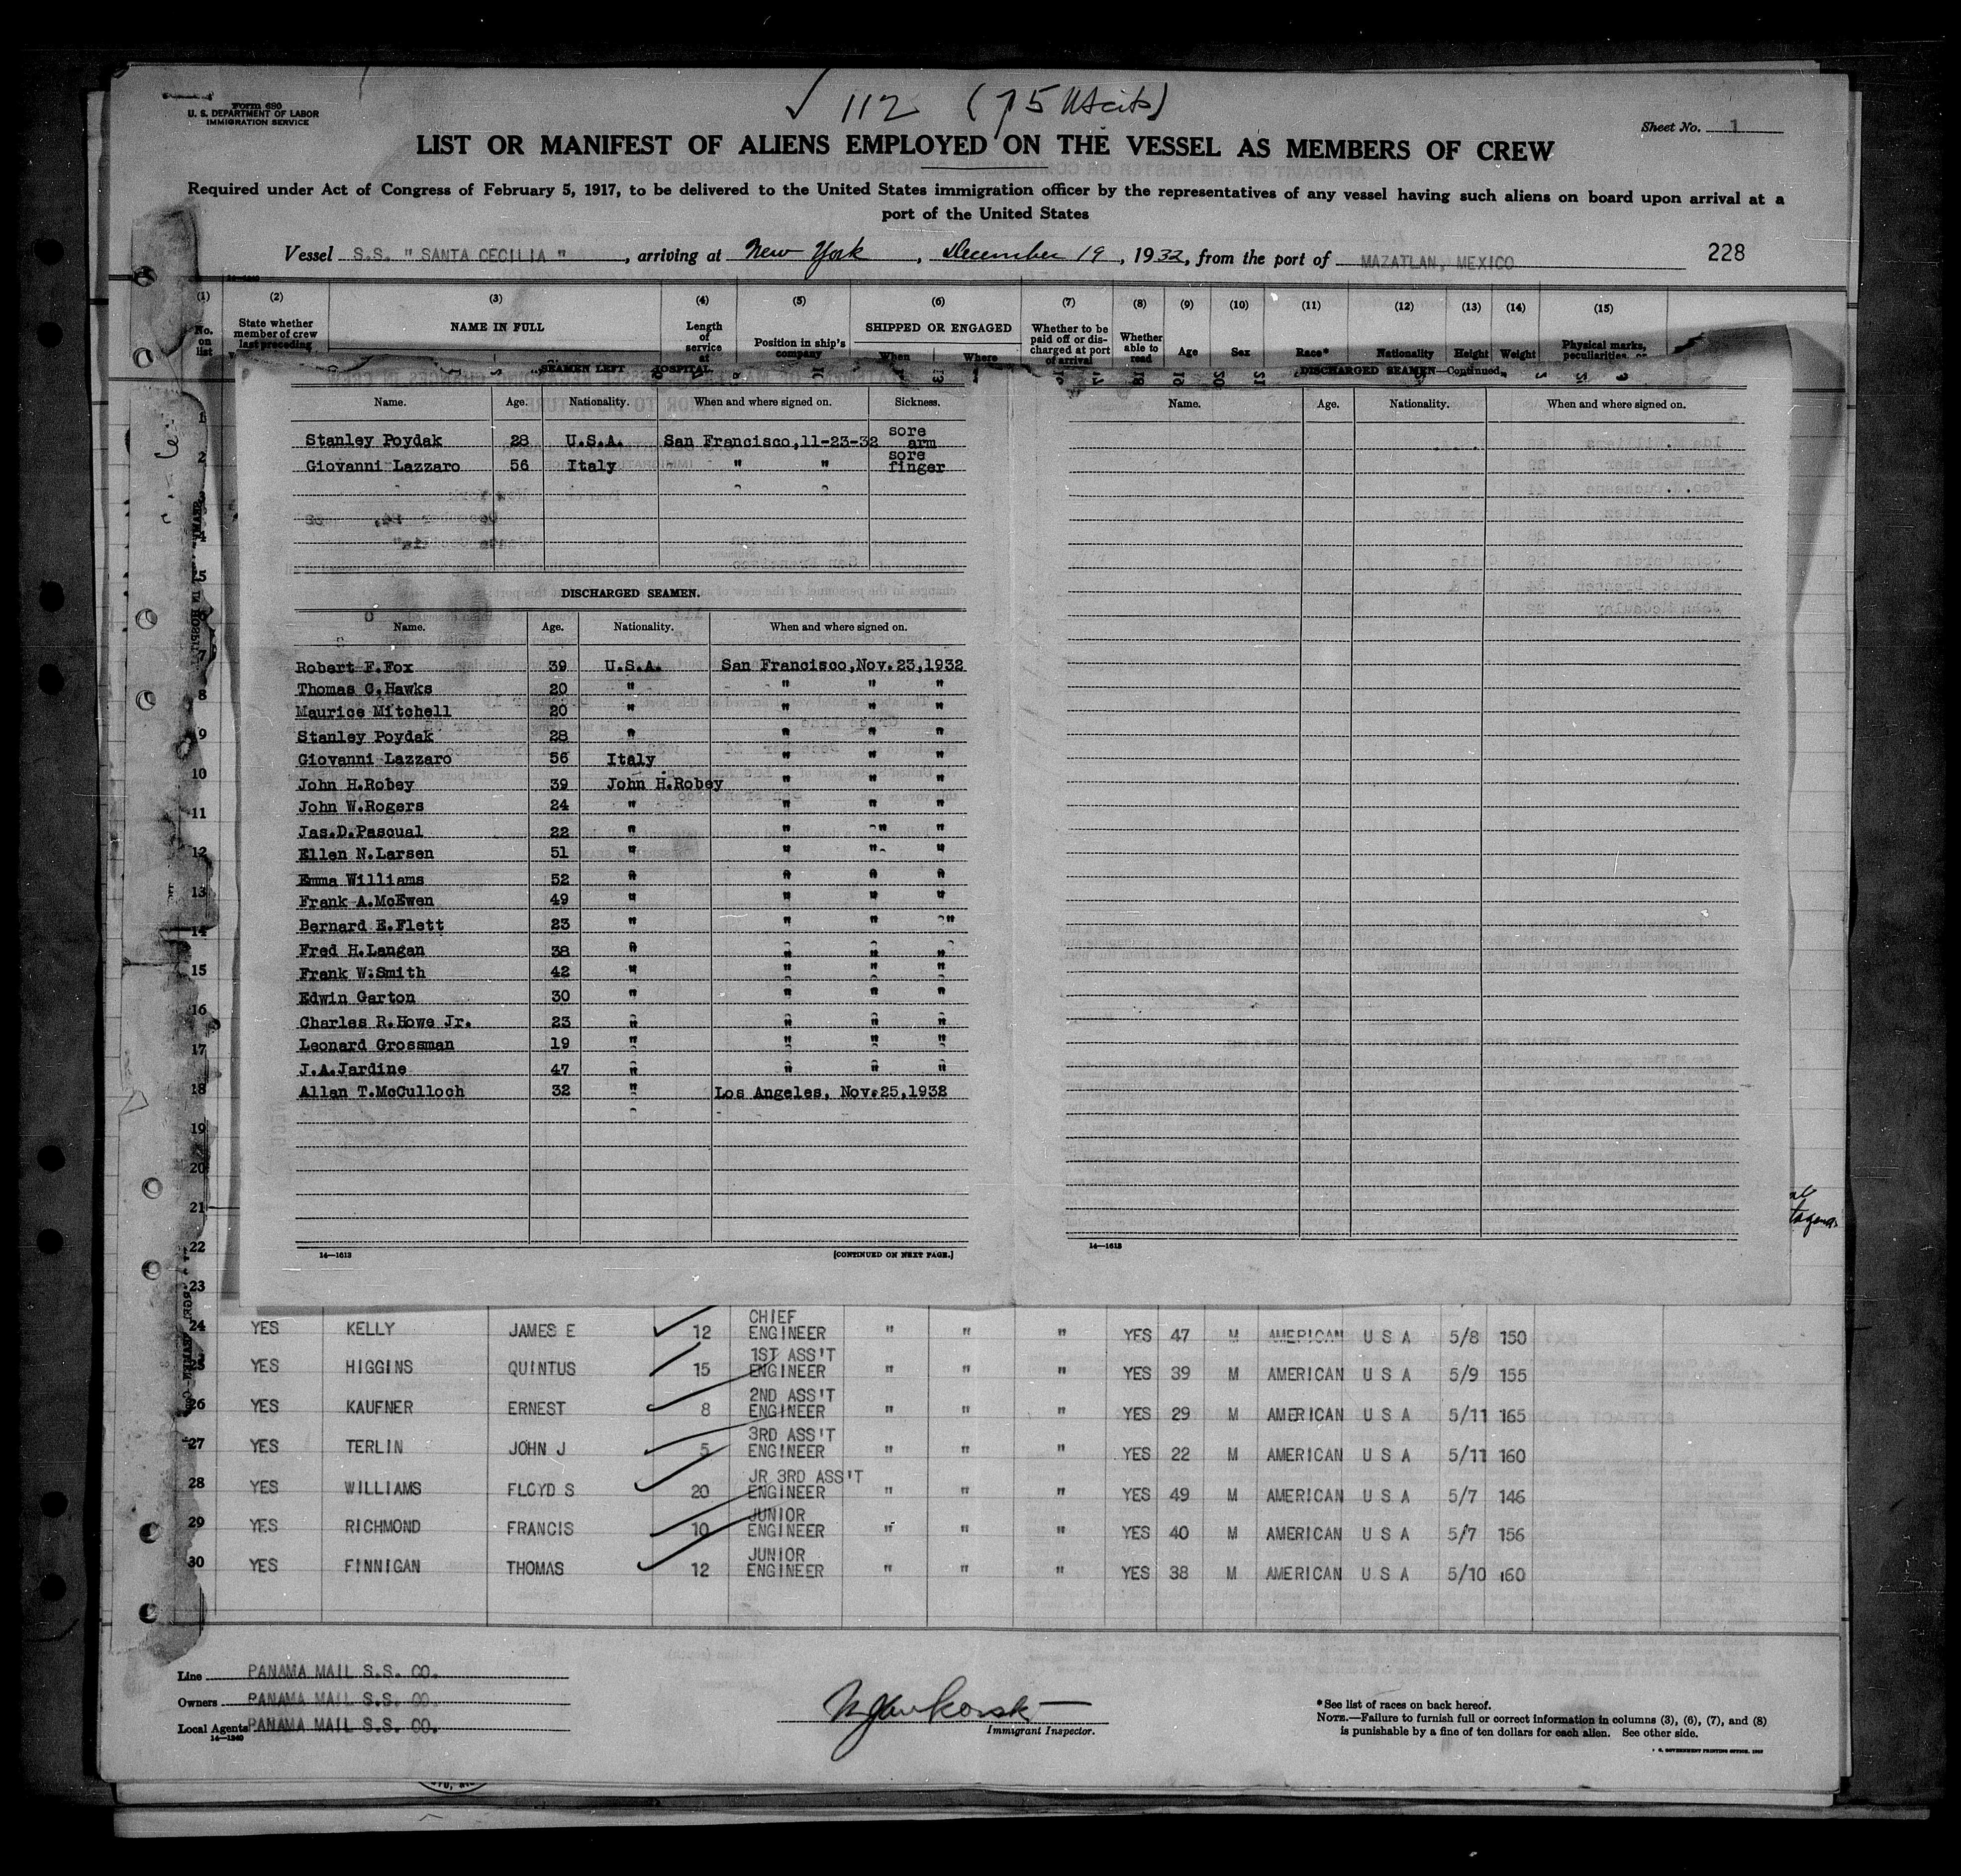 Form 680
U. S. DEPARTMENT OF LABOR
IMMIGRATION SERVICE
√ 112 (75 UScits)
Sheet No. 1
LIST OR MANIFEST OF ALIENS EMPLOYED ON THE VESSEL AS MEMBERS OF CREW
Required under Act of Congress of February 5, 1917, to be delivered to the United States immigration officer by the representatives of any vessel having such aliens on board upon arrival at a
port of the United States
Vessel S.S. " SANTA CECILIA ", arriving at New York, December 19, 1932, from the port of MAZATLAN, MEXICO 228
(1) (2) (3) (4) (5) (6) (7) (8) (9) (10) (11) (12) (13) (14) (15)
No. on list State whether member of crew last preceding NAME IN FULL Length of service at Position in ship's company SHIPPED OR ENGAGED When Where Whether to be paid off or discharged at port of arrival Whether able to read Age Sex Race* Nationality Height Weight Physical marks, peculiarities, or
SEAMEN LEFT HOSPITAL
Name. Age. Nationality. When and where signed on. Sickness.
Stanley Poydak 28 U.S.A. San Francisco,11-23-32 sore arm
Giovanni Lazzaro 56 Italy " " sore finger
DISCHARGED SEAMEN.
Name. Age. Nationality. When and where signed on.
Robert F.Fox 39 U.S.A. San Francisco,Nov.23,1932
Thomas G.Hawks 20 " " " "
Maurice Mitchell 20 " " " "
Stanley Poydak 28 " " " "
Giovanni Lazzaro 56 Italy " " "
John H.Robey 39 John H.Robey " " "
John W.Rogers 24 " " " "
Jas.D.Pascual 22 " " " "
Ellen N.Larsen 51 " " " "
Emma Williams 52 " " " "
Frank A.McEwen 49 " " " "
Bernard E.Flett 23 " " " "
Fred H.Langan 38 " " " "
Frank W.Smith 42 " " " "
Edwin Garton 30 " " " "
Charles R.Howe Jr. 23 " " " "
Leonard Grossman 19 " " " "
J.A.Jardine 47 " " " "
Allan T.McCulloch 32 " Los Angeles, Nov.25,1932
14—1613 [CONTINUED ON NEXT PAGE.]
DISCHARGED SEAMEN—Continued.
Name. Age. Nationality. When and where signed on.
14—1613
24 YES KELLY JAMES E 12 CHIEF ENGINEER " " " YES 47 M AMERICAN U S A 5/8 150
25 YES HIGGINS QUINTUS 15 1ST ASS'T ENGINEER " " " YES 39 M AMERICAN U S A 5/9 155
26 YES KAUFNER ERNEST 8 2ND ASS'T ENGINEER " " " YES 29 M AMERICAN U S A 5/11 165
27 YES TERLIN JOHN J 5 3RD ASS'T ENGINEER " " " YES 22 M AMERICAN U S A 5/11 160
28 YES WILLIAMS FLOYD S 20 JR 3RD ASS'T ENGINEER " " " YES 49 M AMERICAN U S A 5/7 146
29 YES RICHMOND FRANCIS 10 JUNIOR ENGINEER " " " YES 40 M AMERICAN U S A 5/7 156
30 YES FINNIGAN THOMAS 12 JUNIOR ENGINEER " " " YES 38 M AMERICAN U S A 5/10 160
Line PANAMA MAIL S.S. CO.
Owners PANAMA MAIL S.S. CO.
Local Agents PANAMA MAIL S.S. CO.
14—1240
Immigrant Inspector.
*See list of races on back hereof.
NOTE.—Failure to furnish full or correct information in columns (3), (6), (7), and (8)
is punishable by a fine of ten dollars for each alien. See other side.